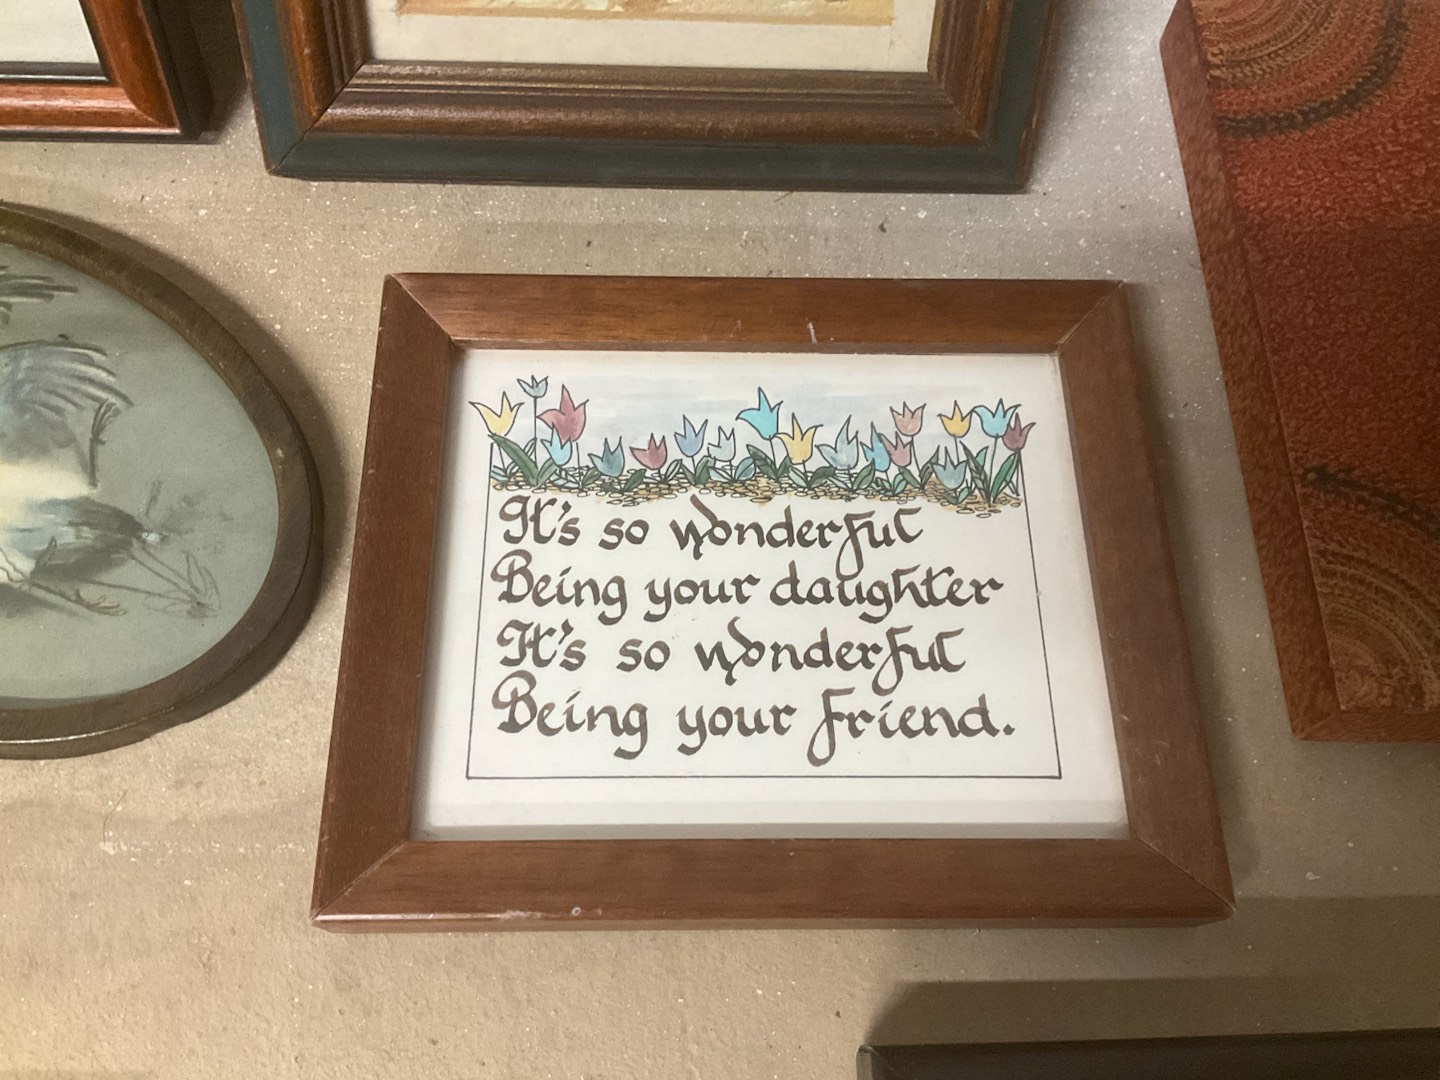 It's so wonderful
Being your daughter
It's so wonderful
Being your friend.